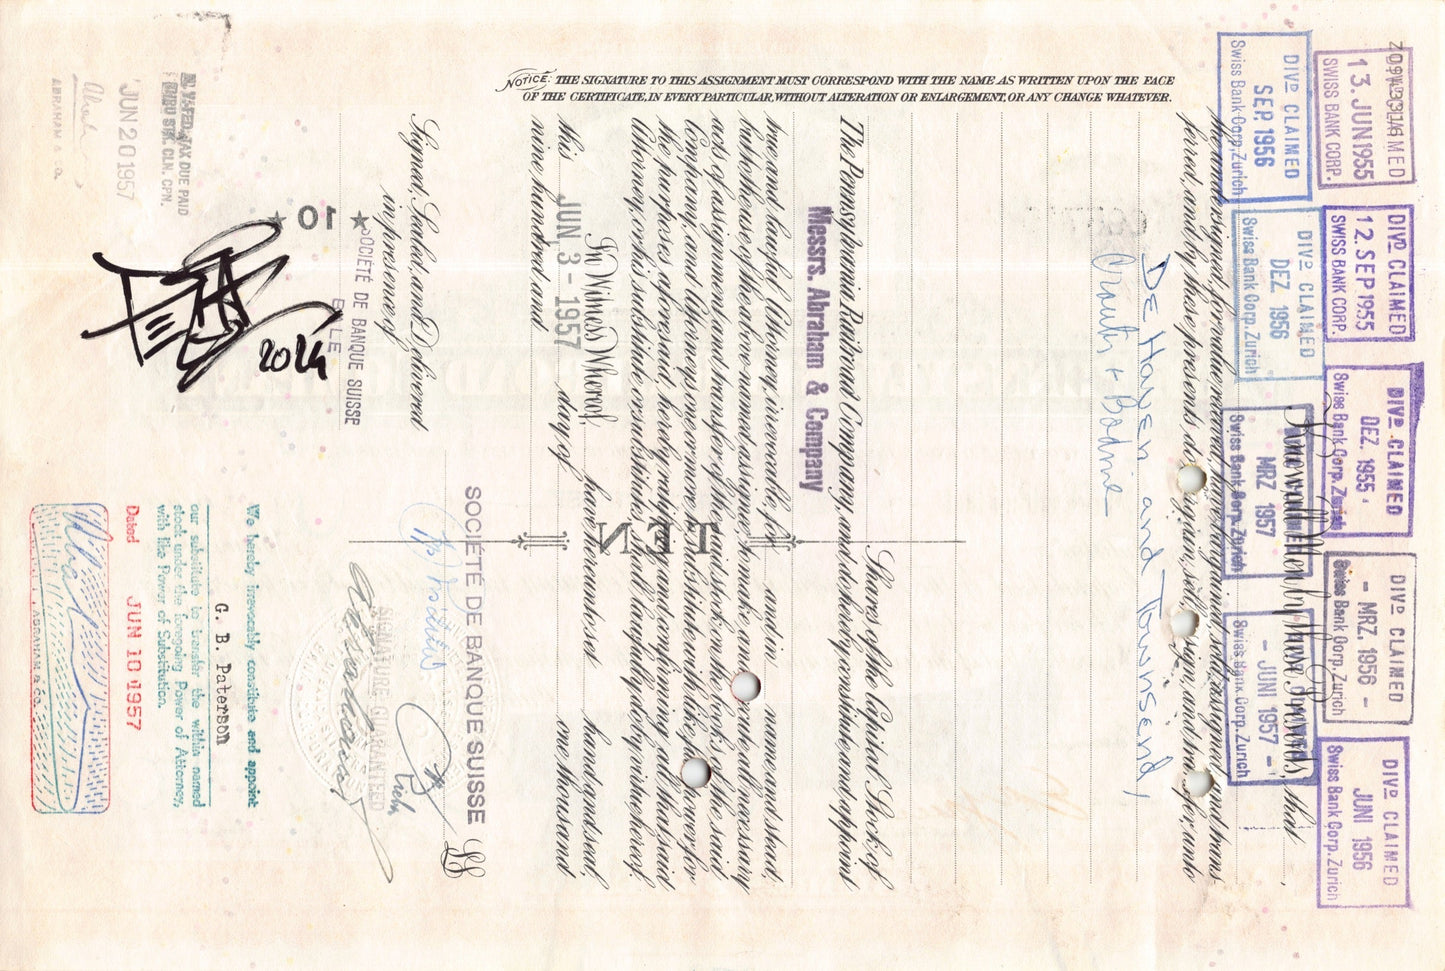 NOTICE: THE SIGNATURE TO THIS ASSIGNMENT MUST CORRESPOND WITH THE NAME AS WRITTEN UPON THE FACE
OF THE CERTIFICATE, IN EVERY PARTICULAR, WITHOUT ALTERATION OR ENLARGEMENT, OR ANY CHANGE WHATEVER.
DIVD CLAIMED
13. JUN 1955
SWISS BANK CORP.
DIVD CLAIMED
12. SEP 1955
SWISS BANK CORP.
DIVD CLAIMED
DEZ. 1955
Swiss Bank Corp. Zurich
DIVD CLAIMED
- MRZ. 1956 -
Swiss Bank Corp. Zurich
DIVD CLAIMED
JUNI 1956
Swiss Bank Corp. Zurich
DIVD CLAIMED
SEP. 1956
Swiss Bank Corp. Zurich
DIVD CLAIMED
DEZ 1956
Swiss Bank Corp. Zurich
MRZ 1957
Swiss Bank Corp. Zurich
- JUNI 1957 -
Swiss Bank Corp. Zurich
Know all Men by these Presents, that
the undersigned, for value received, have bargained, sold, assigned and trans-
ferred, and by these presents do bargain, sell, assign and transfer unto
DE Haven and Townsend,
Crouter + Bodine
Shares of the Capital Stock of
The Pennsylvania Railroad Company, and do hereby constitute and appoint
Messrs. Abraham & Company
true and lawful Attorney, irrevocable, for and in name and stead,
but to the use of the above-named assignee to make and execute all necessary
acts of assignment and transfer of the said stock on the books of the said
Company, and Attorneys one or more to substitute with like full power, for
the purposes aforesaid, hereby ratifying and confirming all that said
Attorney or his substitute or substitutes shall lawfully do by virtue hereof.
In Witness Whereof, have hereunto set hand and seal,
this day of one thousand
JUN 3 - 1957
nine hundred and
TEN
Signed, Sealed, and Delivered
in presence of
SOCIÉTÉ DE BANQUE SUISSE
SOCIÉTÉ DE BANQUE SUISSE
BALE
★ 10 ★
SIGNATURE GUARANTEED
2024
We hereby irrevocably constitute and appoint
G. B. Paterson
our substitute to transfer the within named
stock under the foregoing Power of Attorney,
with like Power of Substitution.
Dated JUN 10 1957
ABRAHAM & CO.
TAX DUE PAID
STK. CLN. CPN.
JUN 20 1957
ABRAHAM & CO